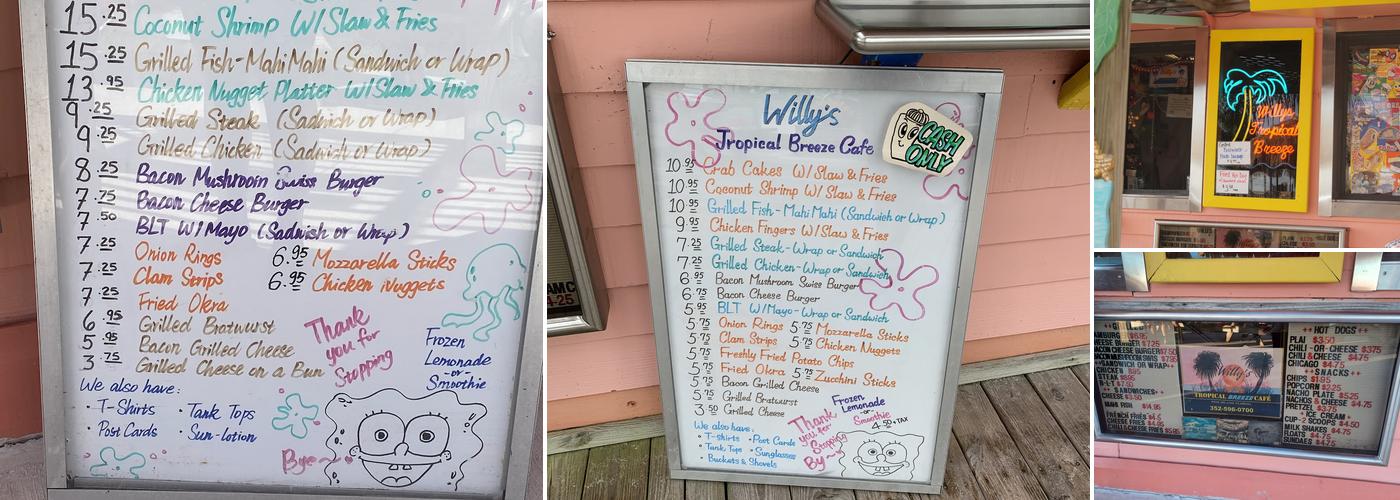 15.25 Coconut Shrimp W/Slaw & Fries
15.25 Grilled Fish-MahiMahi (Sandwich or Wrap)
13.95 Chicken Nugget Platter W/Slaw & Fries
9.25 Grilled Steak (Sadwich or Wrap)
9.25 Grilled Chicken (Sadwich or Wrap)
8.25 Bacon Mushroom Swiss Burger
7.75 Bacon Cheese Burger
7.50 BLT W/Mayo (Sadwish or Wrap)
7.25 Onion Rings 6.95 Mozzarella Sticks
7.25 Clam Strips 6.95 Chicken Nuggets
7.25 Fried Okra
6.95 Grilled Bratwurst
5.95 Bacon Grilled Cheese
3.75 Grilled Cheese on a Bun
Thank
you for
Stopping
Frozen
Lemonade
-or-
Smoothie
We also have:
• T-Shirts • Tank Tops
• Post Cards • Sun-lotion
Bye~
Willy's
Tropical Breeze Cafe
CASH
ONLY
10.95 Crab Cakes W/Slaw & Fries
10.95 Coconut Shrimp W/Slaw & Fries
10.95 Grilled Fish-MahiMahi (Sandwich or Wrap)
9.95 Chicken Fingers W/Slaw & Fries
7.25 Grilled Steak-Wrap or Sandwich
7.25 Grilled Chicken-Wrap or Sandwich
6.95 Bacon Mushroom Swiss Burger
6.75 Bacon Cheese Burger
5.95 BLT W/Mayo-Wrap or Sandwich
5.75 Onion Rings 5.75 Mozzarella Sticks
5.75 Clam Strips 5.75 Chicken Nuggets
5.75 Freshly Fried Potato Chips
5.75 Fried Okra 5.75 Zucchini Sticks
5.75 Bacon Grilled Cheese
5.75 Grilled Bratwurst
3.50 Grilled Cheese
Thank
you for
Stopping
By~
Frozen
Lemonade
-or-
Smoothie
4.50+TAX
We also have:
• T-shirts • Post Cards
• Tank Tops • Sunglasses
• Buckets & Shovels
Willy's
Tropical
Breeze
Willy's
TROPICAL BREEZE CAFÉ
352-596-0700
++HOT DOGS++
PLAI $3.50
CHILI-OR-CHEESE $3.75
CHILI & CHEESE $4.75
CHICAGO $4.75
++SNACKS++
CHIPS $1.95
POPCORN $3.25
NACHO PLATE $5.25
NACHOS & CHEESE $4.75
PRETZEL $3.75
++ICE CREAM++
CUP-2 SCOOPS $4.50
MILK SHAKES $4.75
FLOATS $4.75
SUNDAES $4.75